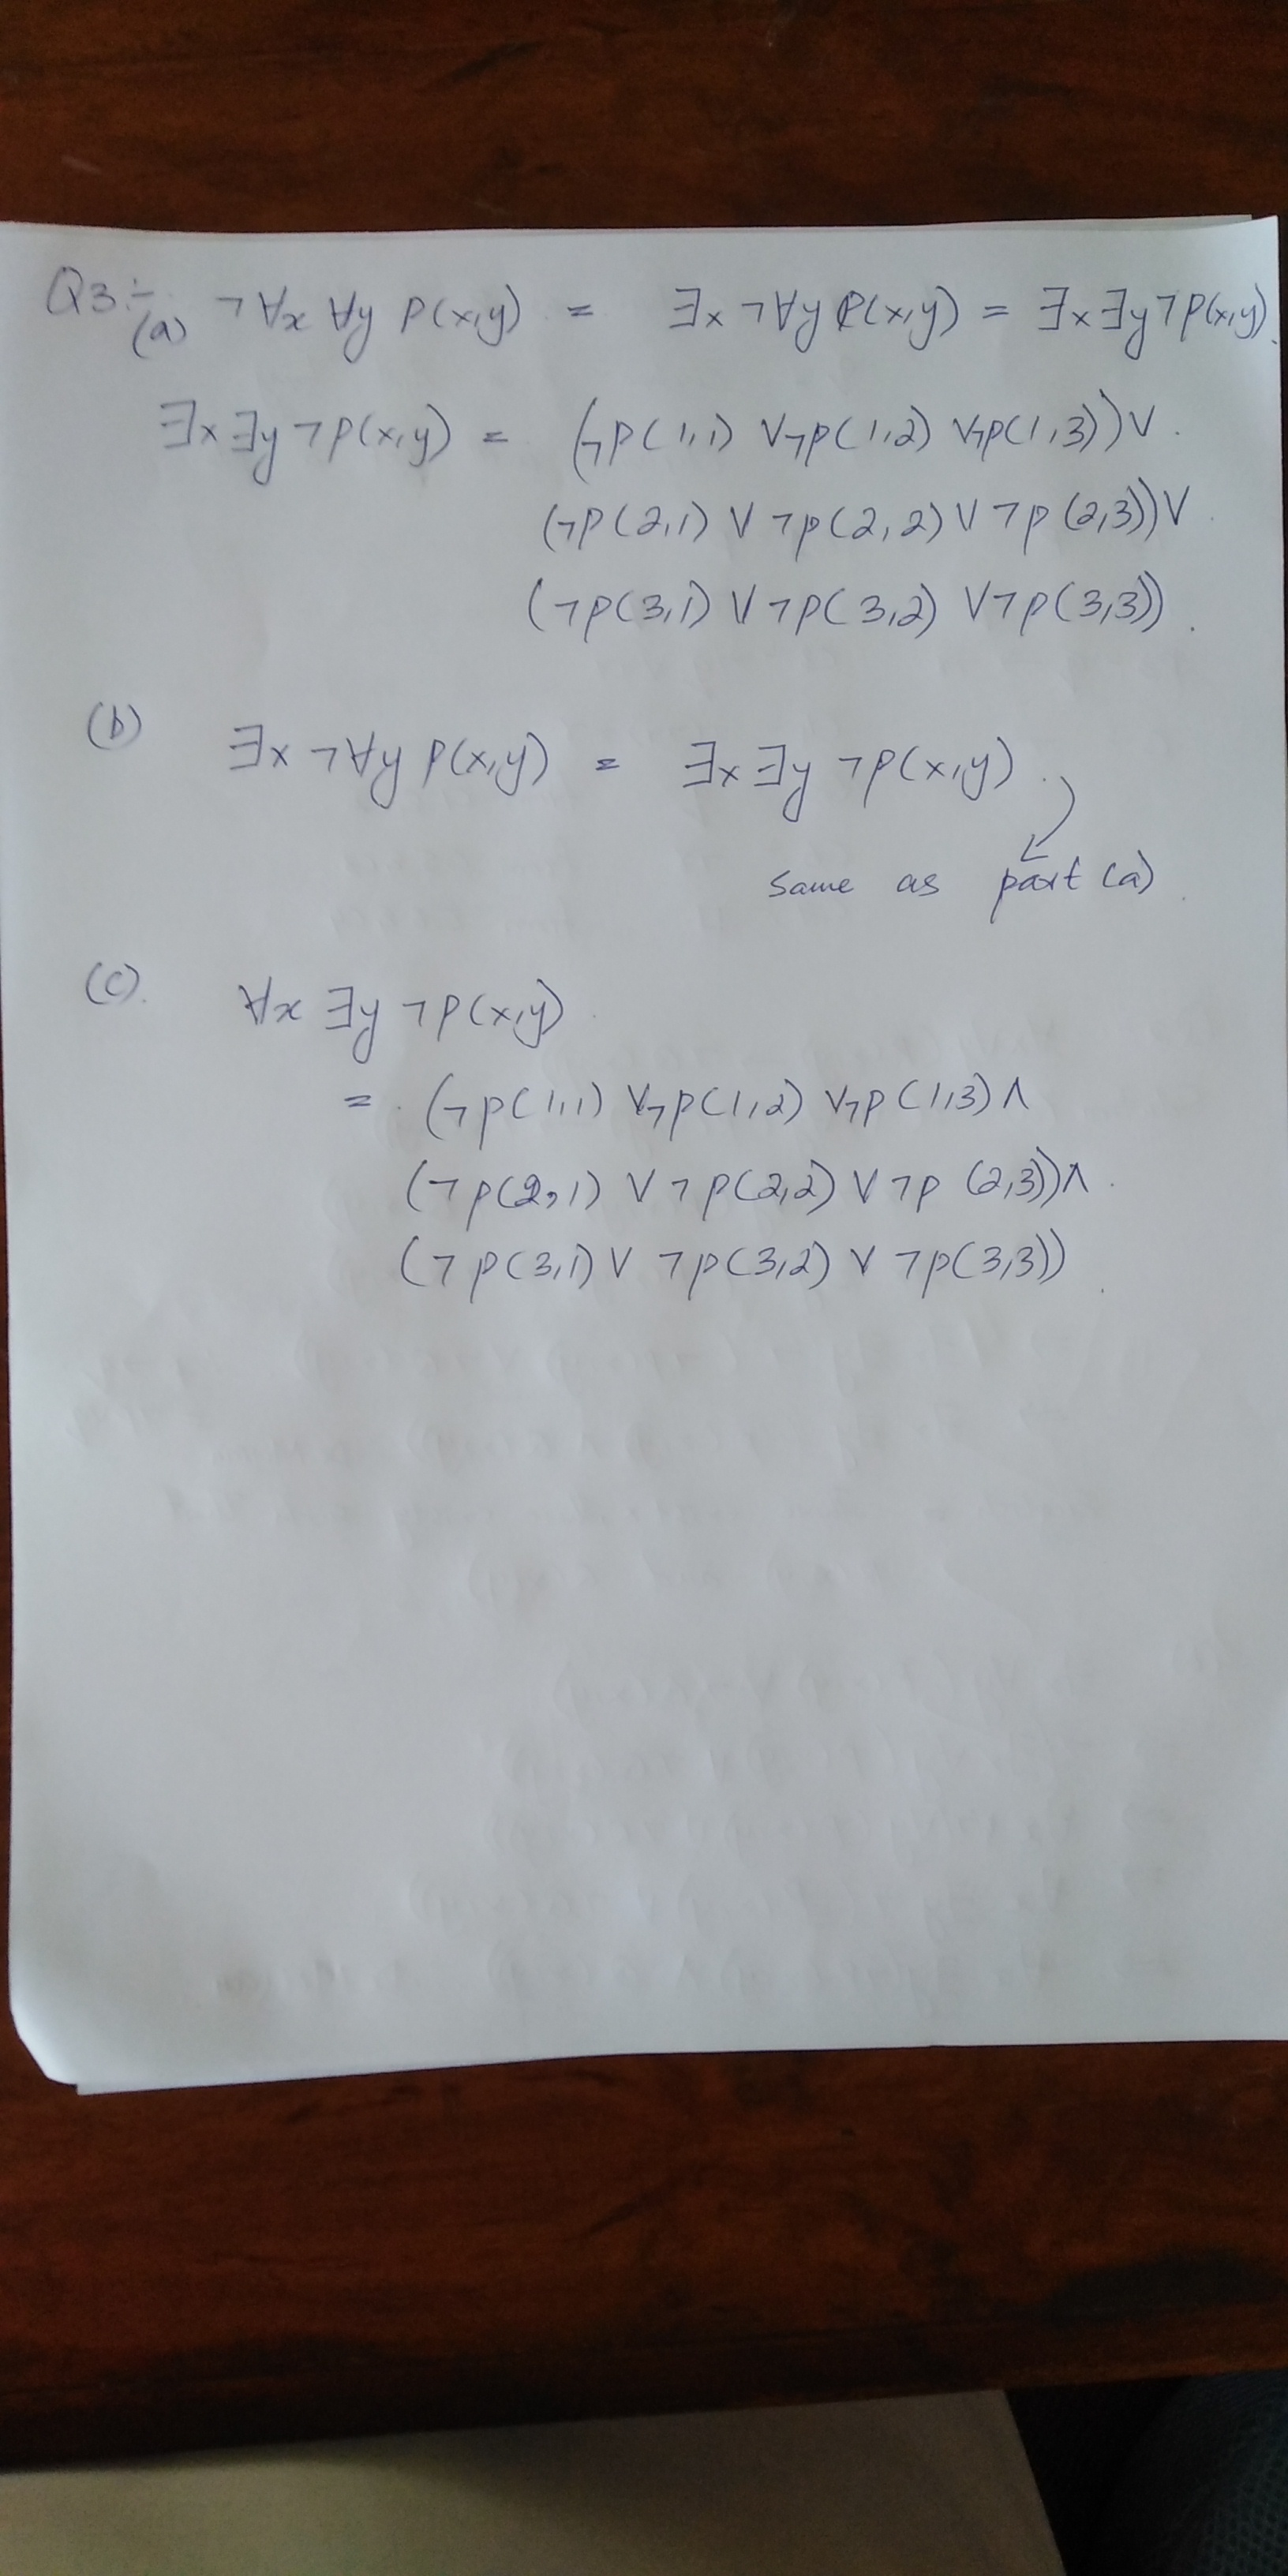 Q3:-
(a) ¬∀x ∀y P(x,y) = ∃x ¬∀y P(x,y) = ∃x∃y¬P(x,y).
∃x ∃y ¬P(x,y) = (¬P(1,1) ∨¬P(1,2) ∨¬P(1,3))∨
(¬P(2,1) ∨ ¬P(2,2) ∨ ¬P(2,3))∨
(¬P(3,1) ∨ ¬P(3,2) ∨¬P(3,3)).
(b) ∃x ¬∀y P(x,y) = ∃x ∃y ¬P(x,y).
same as part (a).
(c). ∀x ∃y ¬P(x,y)
= (¬P(1,1) ∨¬P(1,2) ∨¬P(1,3) ∧
(¬P(2,1) ∨ ¬P(2,2) ∨ ¬P (2,3))∧
(¬P(3,1) ∨ ¬P(3,2) ∨ ¬P(3,3)).